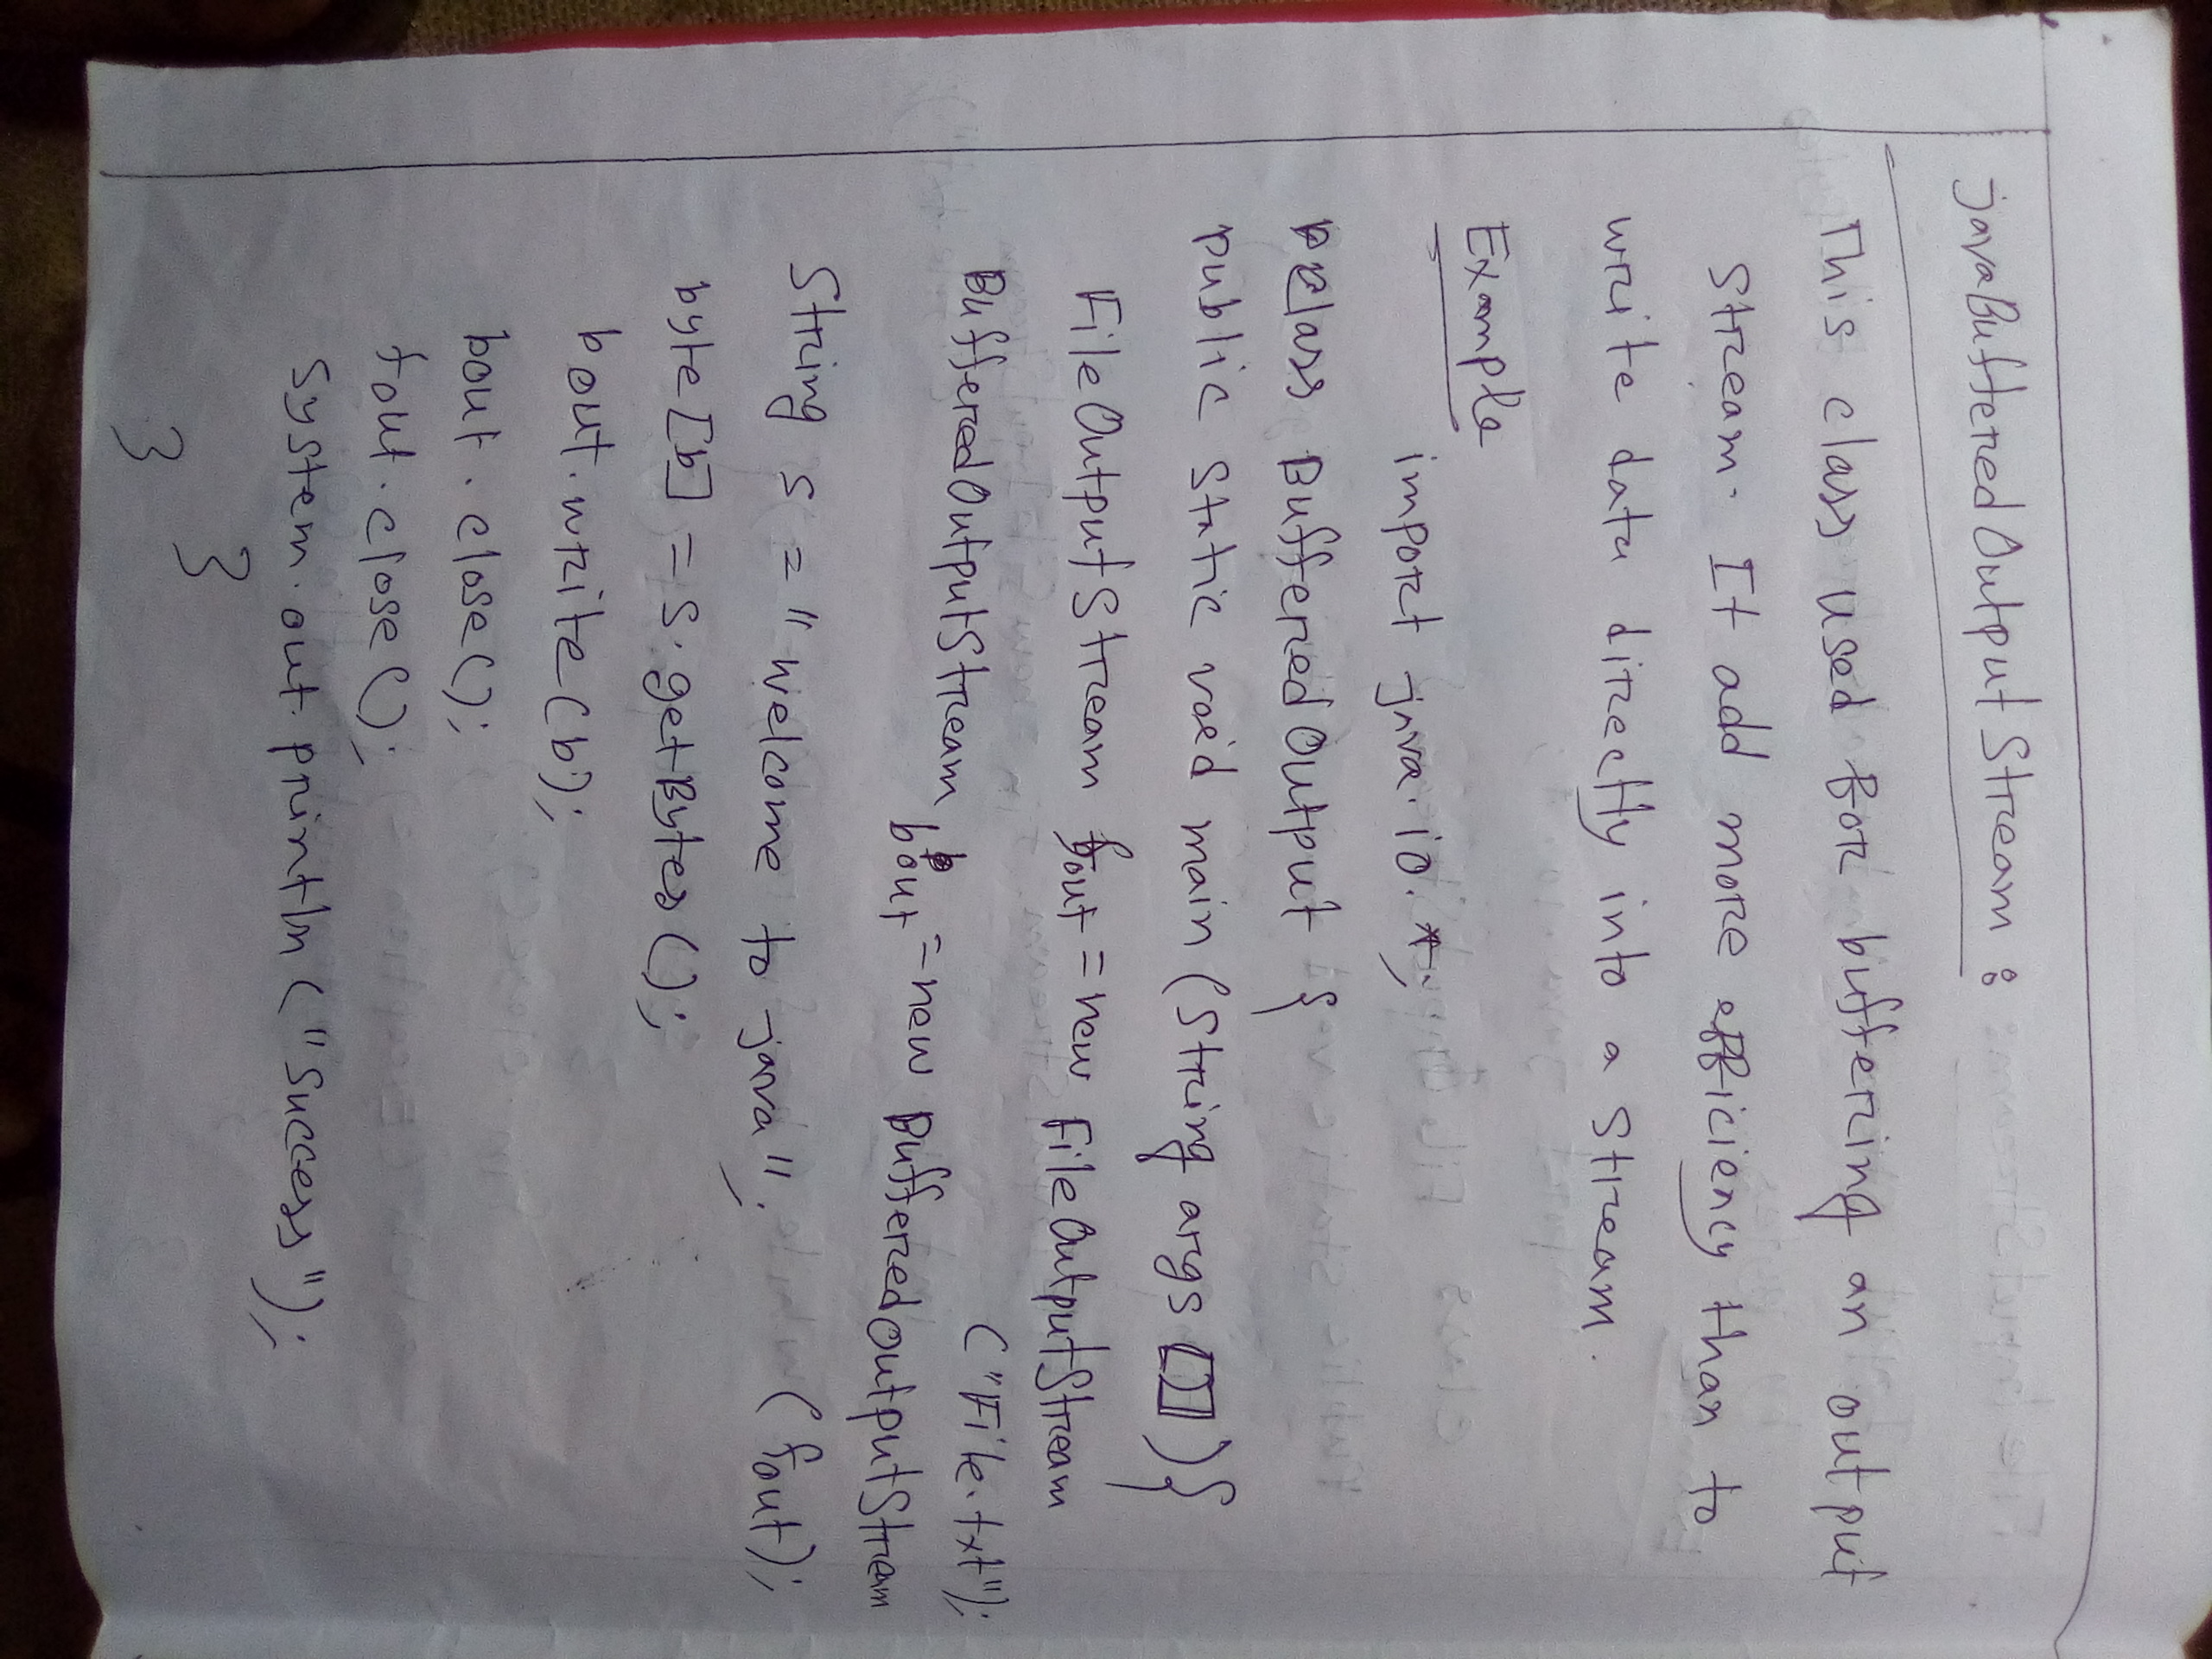 javaBufferedOutputStream :
This class used for buffering an output
stream. It add more efficiency than to
write data directly into a stream.
Example
import java.io.*;
class BufferedOutput {
public static void main (String args []){
FileOutputStream fout = new FileOutputStream
("File.txt");
BufferedOutputStream bout = new BufferedOutputStream
(fout);
String s = "welcome to java";
byte [b] = s.getBytes();
bout.write(b);
bout.close();
fout.close();
System.out.println("Success");
}
}